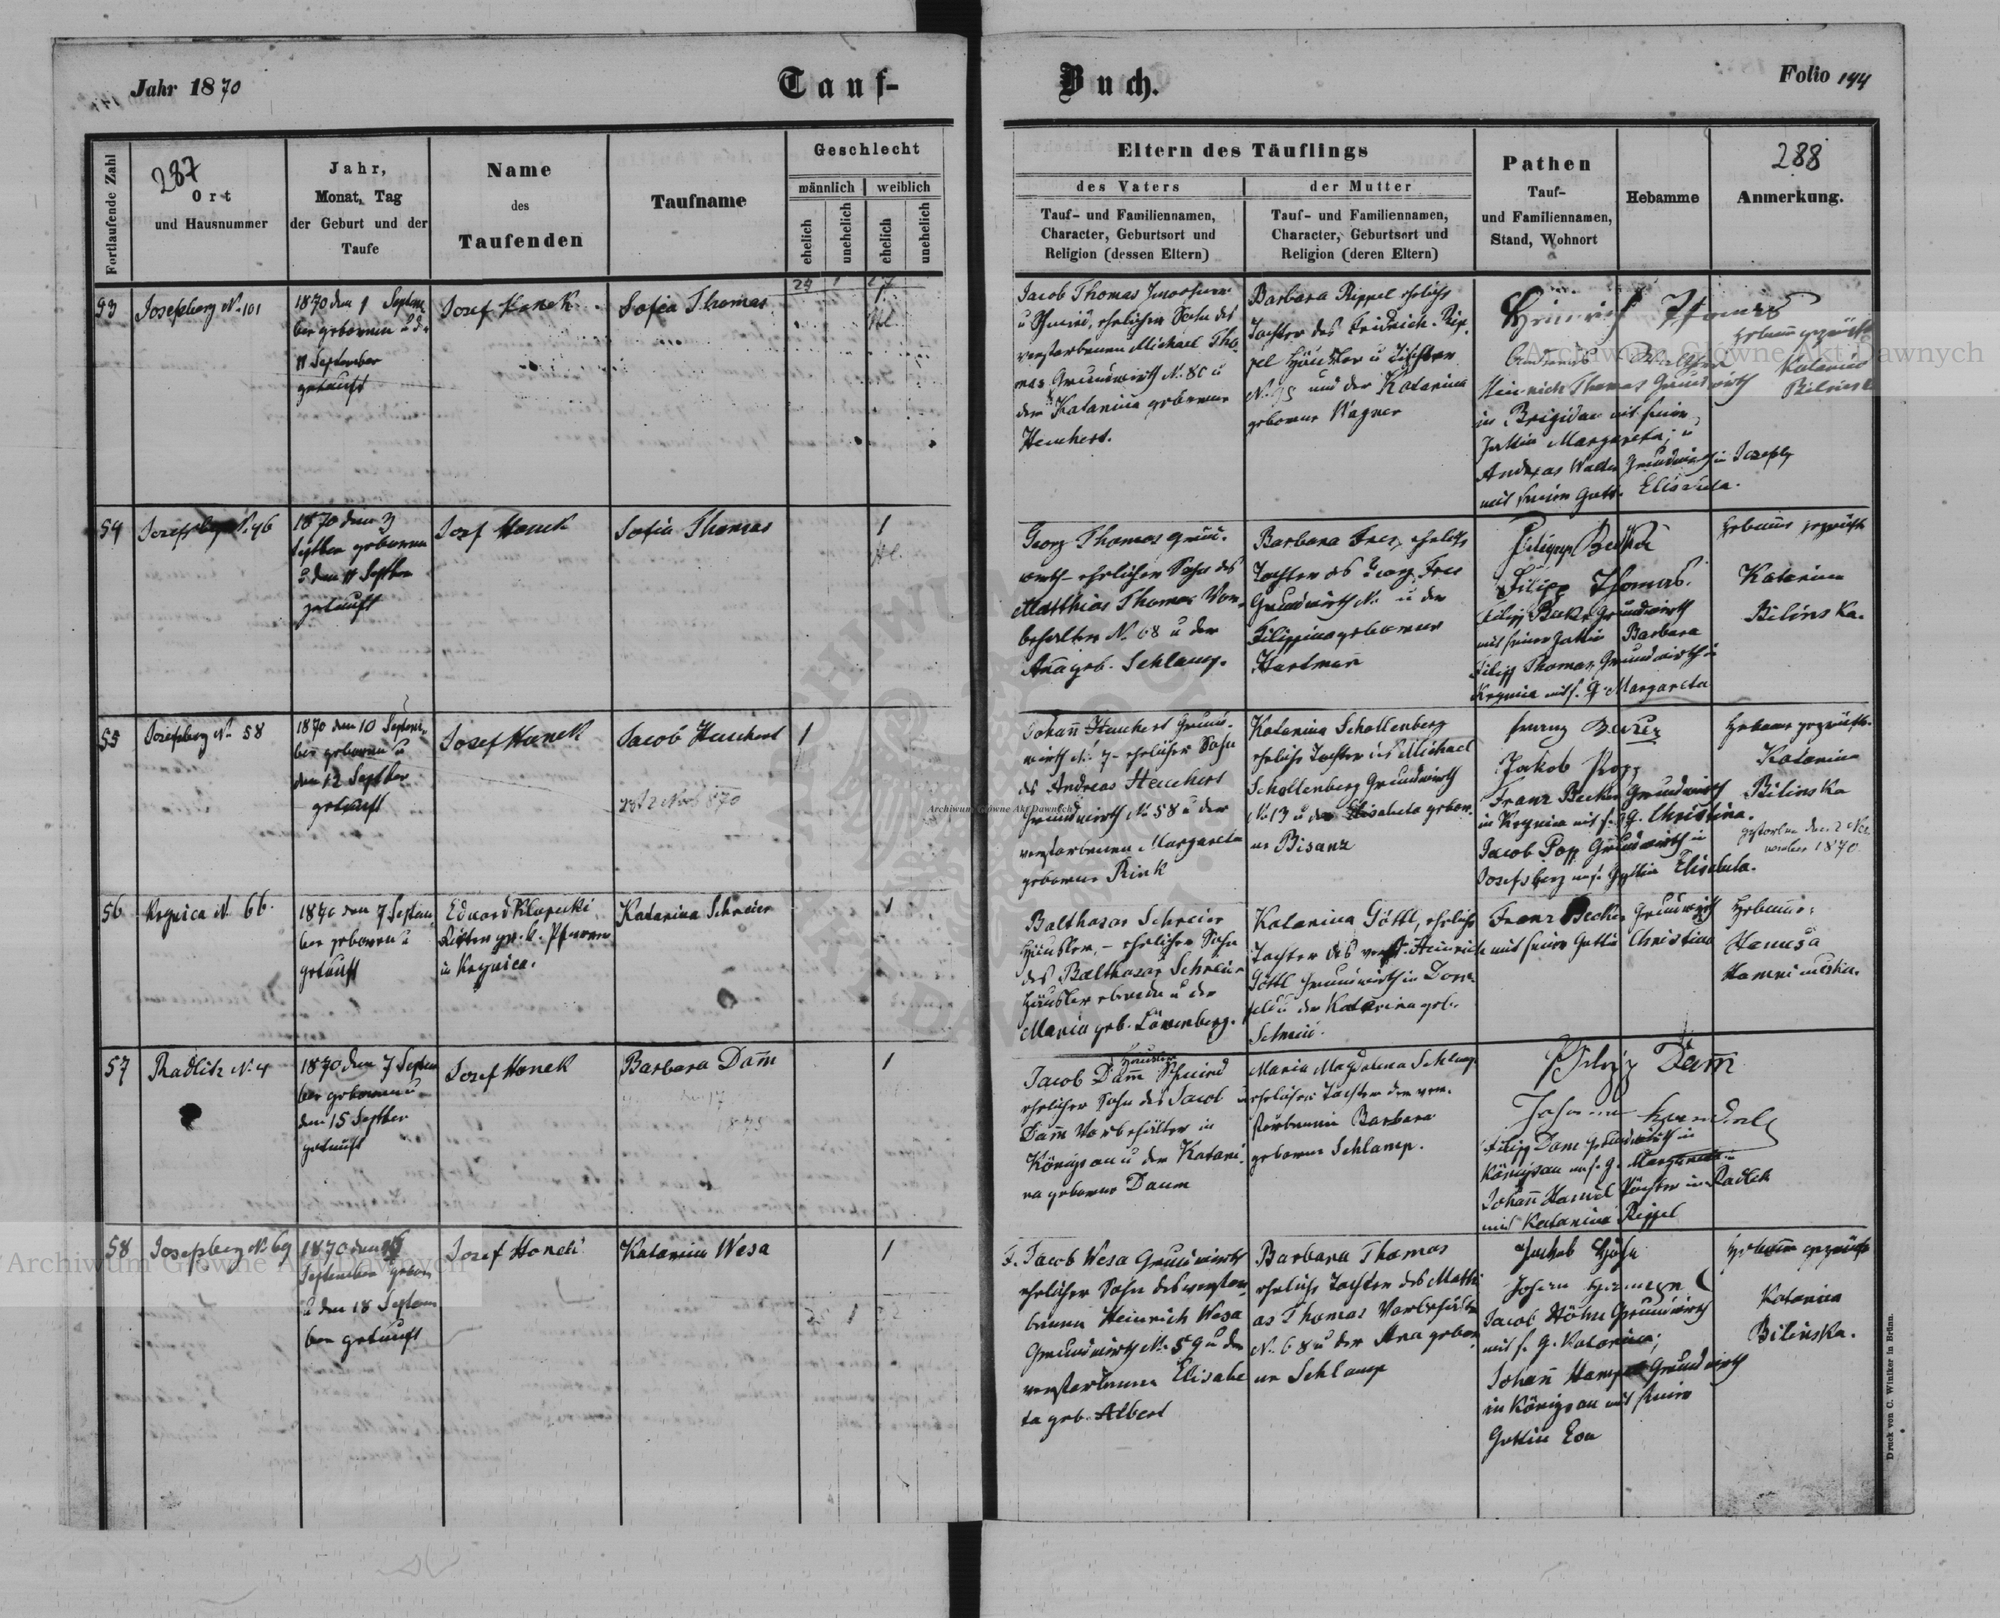 Jahr 1870
Tauf-
Buch.
Folio 144
Fortlaufende Zahl
287
Ort
und Hausnummer
Jahr,
Monat, Tag
der Geburt und der
Taufe
Name
des
Taufenden
Taufname
Geschlecht
männlich
weiblich
ehelich
unehelich
ehelich
unehelich
Eltern des Täuflings
des Vaters
der Mutter
Tauf- und Familiennamen,
Character, Geburtsort und
Religion (dessen Eltern)
Tauf- und Familiennamen,
Character, Geburtsort und
Religion (deren Eltern)
Pathen
Tauf-
und Familiennamen,
Stand, Wohnort
Hebamme
288
Anmerkung.
53
Josefsberg No. 101
1870 den 1 Septem
ber geboren u d.
11 September
getauft
Josef Hanek
Sofia Thomas
1
Jacob Thomas
u Schmied, ehelicher Sohn des
verstorbenen Michael Tho
mas Grundwirth N. 80 u
der Katarina geborene
Heuchert.
Barbara Rippel eheliche
Tochter des Fridrich Rip
pel Häusler u Tischler
N. 95 und der Katarina
geborene Wagner
Heinrich Thomas
Heinrich Thomas Grundwirth
in Brigidau mit seiner
Gattin Margareta; u
Andreas Walter Grundwirth in Josefsb
mit seiner Gatt. Elisabeta.
Hebamme geprüfte
Katarina
Bilinska
54
Josefsberg N. 46
1870 den 3
Septber geboren
u den 11 Septber
getauft
Josef Hanek
Sofia Thomas
1
Georg Thomas Grund
wirth ehelicher Sohn des
Matthias Thomas Vor
behälter N. 68 u der
Anna geb. Schlamp.
Barbara Frey eheliche
Tochter des Georg Frey
Grundwirth N. u der
Filippina geborene
Hartmann
Philipp Becker
Filipp Thomas.
Filipp Becker Grundwirth
mit seiner Gattin Barbara
Filipp Thomas Grundwirth in
Krynica mit s. G. Margareta
Hebamme geprüfte
Katarina
Bilinska.
55
Josefsberg N. 58
1870 den 10 Septem
ber geboren u
den 12 Septber
getauft
Josef Hanek
Jacob Heuchert
1
Johann Heuchert Grund
wirth N. 7 ehelicher Sohn
des Andreas Heuchert
Grundwirth N. 58 u der
verstorbenen Margareta
geborene Rink
Katarina Schollenberg
eheliche Tochter des Michael
Schollenberg Grundwirth
N. 13 u der Elisabeta gebor
ne Bisanz
Franz Becker
Jakob Popp
Franz Becker Grundwirth
in Krynica mit s. G. Christina.
Jacob Popp Grundwirth in
Josefsberg mit s. Gattin Elisabeta.
Hebamme geprüfte
Katarina
Bilinska
gestorben den 2 No
vember 1870
56
Krynica N. 66.
1870 den 7 Septem
ber geboren u
getauft
Eduard Klopecki
in Krynica.
Katarina Schreier
1
Balthasar Schreier
Häusler, ehelicher Sohn
des Balthasar Schreier
Häusler ebenda u der
Maria geb. Löwenberg.
Katarina Göttl, eheliche
Tochter des verst. Heinrich
Göttl Grundwirth in Dorn
feld u der Katarina geb.
Schmid.
Franz Becker Grundwirth
mit seiner Gattin Christina
Hebamme:
Hanusa
57
Radlitz N. 4
1870 den 7 Septem
ber geboren u
den 15 Septber
getauft
Josef Hanek
Barbara Damm
1
Jacob Damm Schmied
ehelicher Sohn des Jacob
Damm Vorbehälter in
Königsau u der Katari
na geborene Daum
Maria Magdalena Schlamp
eheliche Tochter der ver
storbenen Barbara
geborene Schlamp.
Philipp Dam
Filipp Dam Grundwirth in
Königsau mit s. G. Margareta
Johann Handel Pächter in Radlitz
mit Katarina Rippel
58
Josefsberg N. 69
1870 den 15
September gebor
u den 18 Septem
ber getauft
Josef Hanek
Katarina Wesa
1
Jacob Wesa Grundwirth
ehelicher Sohn des verstor
benen Heinrich Wesa
Grundwirth N. 59 u der
verstorbenen Elisabe
ta geb. Albert
Barbara Thomas
eheliche Tochter des Matthi
as Thomas Vorbehälter
N. 68 u der Anna gebor
ne Schlamp
Jacob Höhn
Jacob Höhn Grundwirth
mit s. G. Katarina;
Johann Grundwirth
in Königsau mit seiner
Gattin Eva
Hebamme geprüfte
Katarina
Bilinska.
Druck von C. Winiker in Brünn.
Archiwum Główne Akt Dawnych
Archiwum Główne Akt Dawnych
Archiwum Główne Akt Dawnych